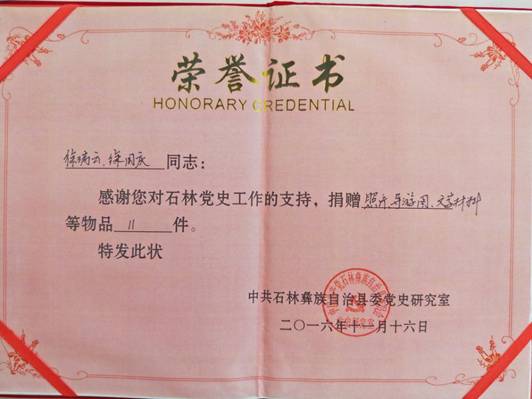 荣誉证书
HONORARY CREDENTIAL
徐瑞云、徐国庆 同志：
感谢您对石林党史工作的支持，捐赠 照片、导游图、文字材料
等物品 11 件。
特发此状
中共石林彝族自治县委党史研究室
二〇一六年十一月十六日